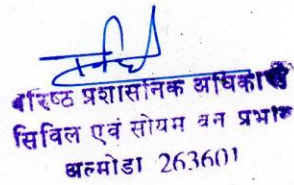 वरिष्ठ प्रशासनिक अधिकारी
सिविल एवं सोयम वन प्रभाग
अल्मोडा 263601